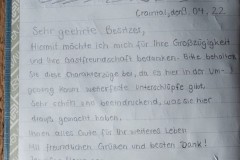 Sehr geehrte Besitzer,
Hiermit möchte ich mich für Ihre Großzügigkeit
und Ihre Gastfreundschaft bedanken. Bitte behalten
Sie den Charakterzüge bei, da es hier in der Um-
gebung kaum wetterfeste Unterschlüpfe gibt.
Sehr schön und beeindruckend, was sie hier
draus gemacht haben.
Ihnen alles Gute für Ihr weiteres Leben
Mit freundlichen Grüßen und besten Dank!